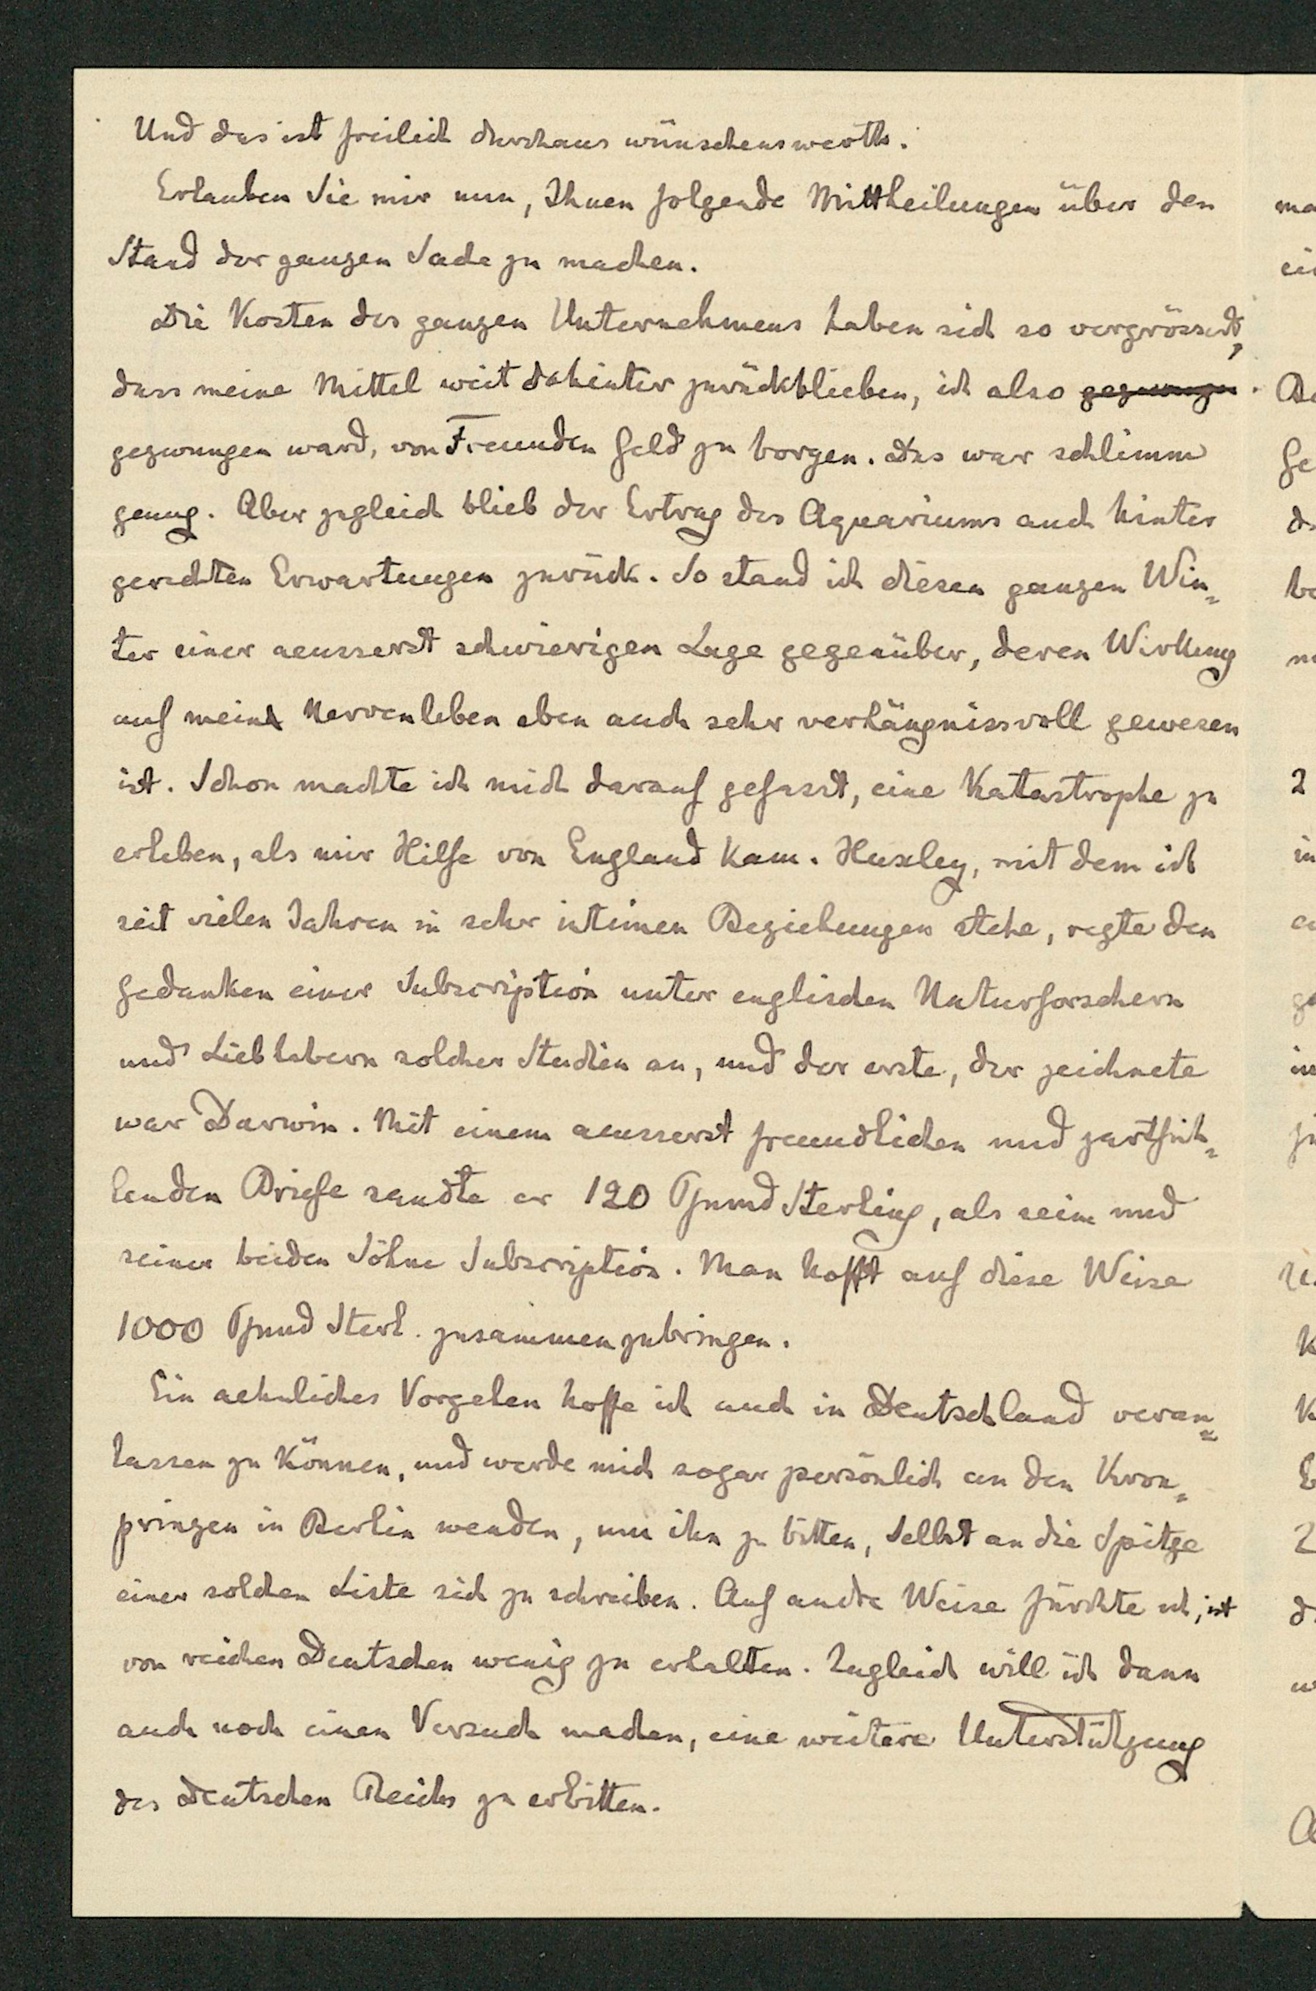 Und das ist freilich durchaus wünschenswerth.
Erlauben Sie mir nun, Ihnen folgende Mittheilungen über den
Stand der ganzen Sache zu machen.
Die Kosten des ganzen Unternehmens haben sich so vergrössert,
dass meine Mittel weit dahinter zurückblieben, ich also gezwungen
gezwungen ward, von Freunden Geld zu borgen. Das war schlimm
genug. Aber zugleich blieb der Ertrag des Aquariums auch hinter
gerechten Erwartungen zurück. So stand ich diesen ganzen Win-
ter einer aeusserst schwierigen Lage gegenüber, deren Wirkung
auf mein Nervenleben eben auch sehr verhängnissvoll gewesen
ist. Schon machte ich mich darauf gefasst, eine Katastrophe zu
erleben, als mir Hilfe von England kam. Huxley, mit dem ich
seit vielen Jahren in sehr intimen Beziehungen stehe, regte den
Gedanken einer Subscription unter englischen Naturforschern
und Liebhabern solcher Studien an, und der erste, der zeichnete
war Darwin. Mit einem aeusserst freundlichen und zartfüh-
lenden Briefe sandte er 120 Pfund Sterling, als seine und
seiner beiden Söhne Subscription. Man hofft auf diese Weise
1000 Pfund Sterl. zusammenzubringen.
Ein aehnliches Vorgehen hoffe ich auch in Deutschland veran-
lassen zu können, und werde mich sogar persönlich an den Kron-
prinzen in Berlin wenden, um ihn zu bitten, selbst an die Spitze
einer solchen Liste sich zu schreiben. Auf andre Weise fürchte ich, ist
von reichen Deutschen wenig zu erhalten. Zugleich will ich dann
auch noch einen Versuch machen, eine weitere Unterstützung
des Deutschen Reichs zu erbitten.